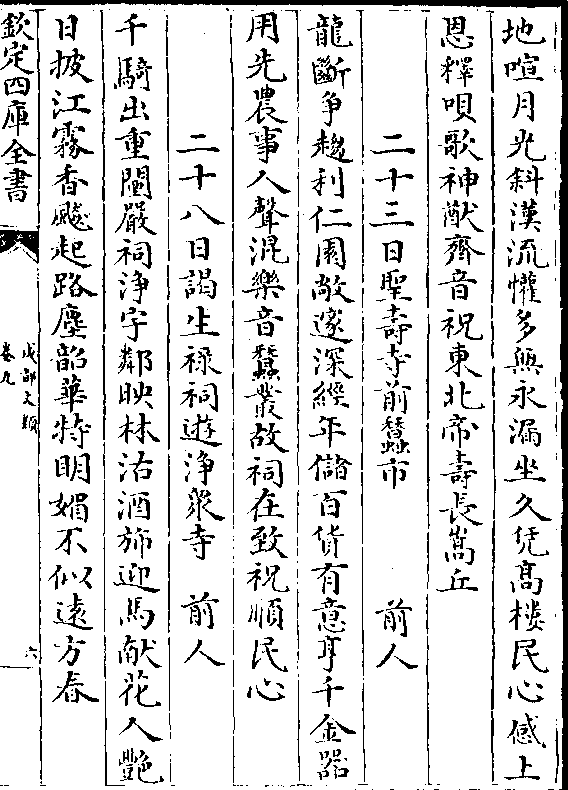 地喧月光斜漢流懽多無永漏坐久凭髙樓民心感上
恩釋唄歌神猷齊音祝東北帝壽長嵩丘
二十三日聖壽寺前蠶市　前人
龍斷爭趨利仁園敞邃深經年儲百貨有意享千金器
用先農事人聲混樂音蠶叢故祠在致祝順民心
二十八日謁生禄祠遊浄衆寺　前人
千騎出重闉嚴祠浄宇鄰映林沽酒斾迎馬献花人艷
日披江霧香飈起路塵韶華特明媚不似遠方春
欽定四庫全書
成都文類
卷九
六